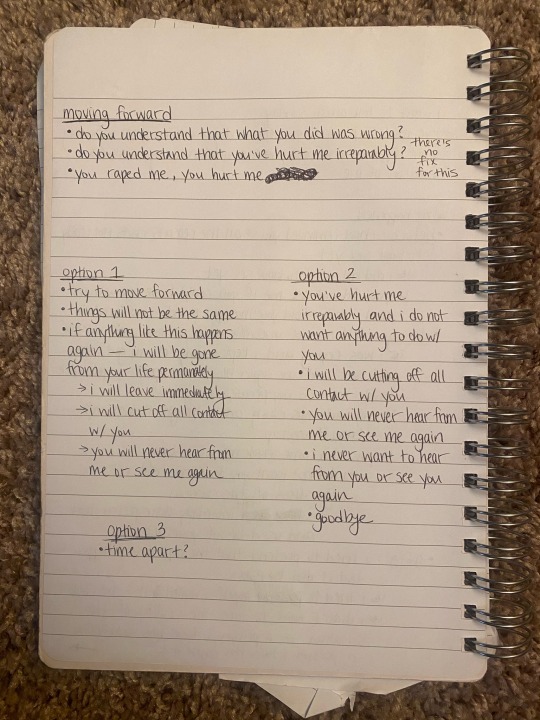 moving forward
• do you understand that what you did was wrong?
• do you understand that you've hurt me irreparably?
there's
no
fix
for this
• you raped me, you hurt me
option 1
• try to move forward
• things will not be the same
• if anything like this happens
again — i will be gone
from your life permanently
→ i will leave immediately
→ i will cut off all contact
w/ you
→ you will never hear from
me or see me again
option 2
• you've hurt me
irreparably and i do not
want anything to do w/
you
• i will be cutting off all
contact w/ you
• you will never hear from
me or see me again
• i never want to hear
from you or see you
again
• goodbye
option 3
• time apart?